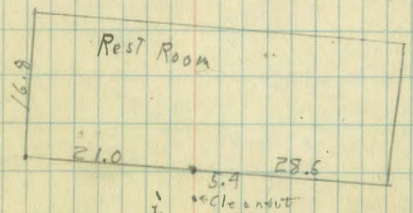 Rest Room
16.8
21.0
28.6
5.4
Cleanout